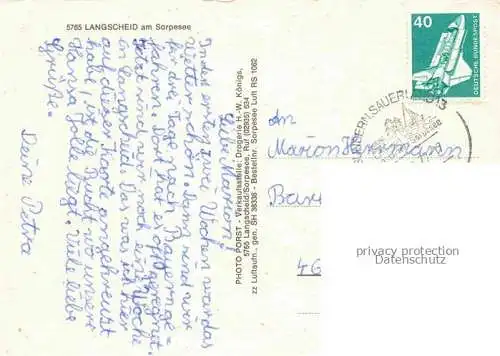 5765 LANGSCHEID am Sorpesee
Liebe Marion!
In den ersten zwei Wochen war das
Wetter schön. Dann sind wir
für die Tage nach Bayern ge-
fahren. Dort hat es oft geregnet.
Jetzt sind wir noch eine Woche
in Langscheid. Da wo ich hier
auf dieser Karte angekreuzt
habe, ist die Bucht wo unsere
Hansa Jolle liegt. Viele liebe
Grüße
Deine Petra
PHOTO PORST - Verkaufsstelle: Drogerie H.-W. Königs,
5765 Langscheid/Sorpesee, Ruf (02935) 634
zz Luftaufn., gen. SH 38338 - Bestellnr. Sorpesee Luft RS 1062
40
DEUTSCHE BUNDESPOST
SUNDERN, SAUERL
An
Marion Herrmann
46
privacy protection
Datenschutz